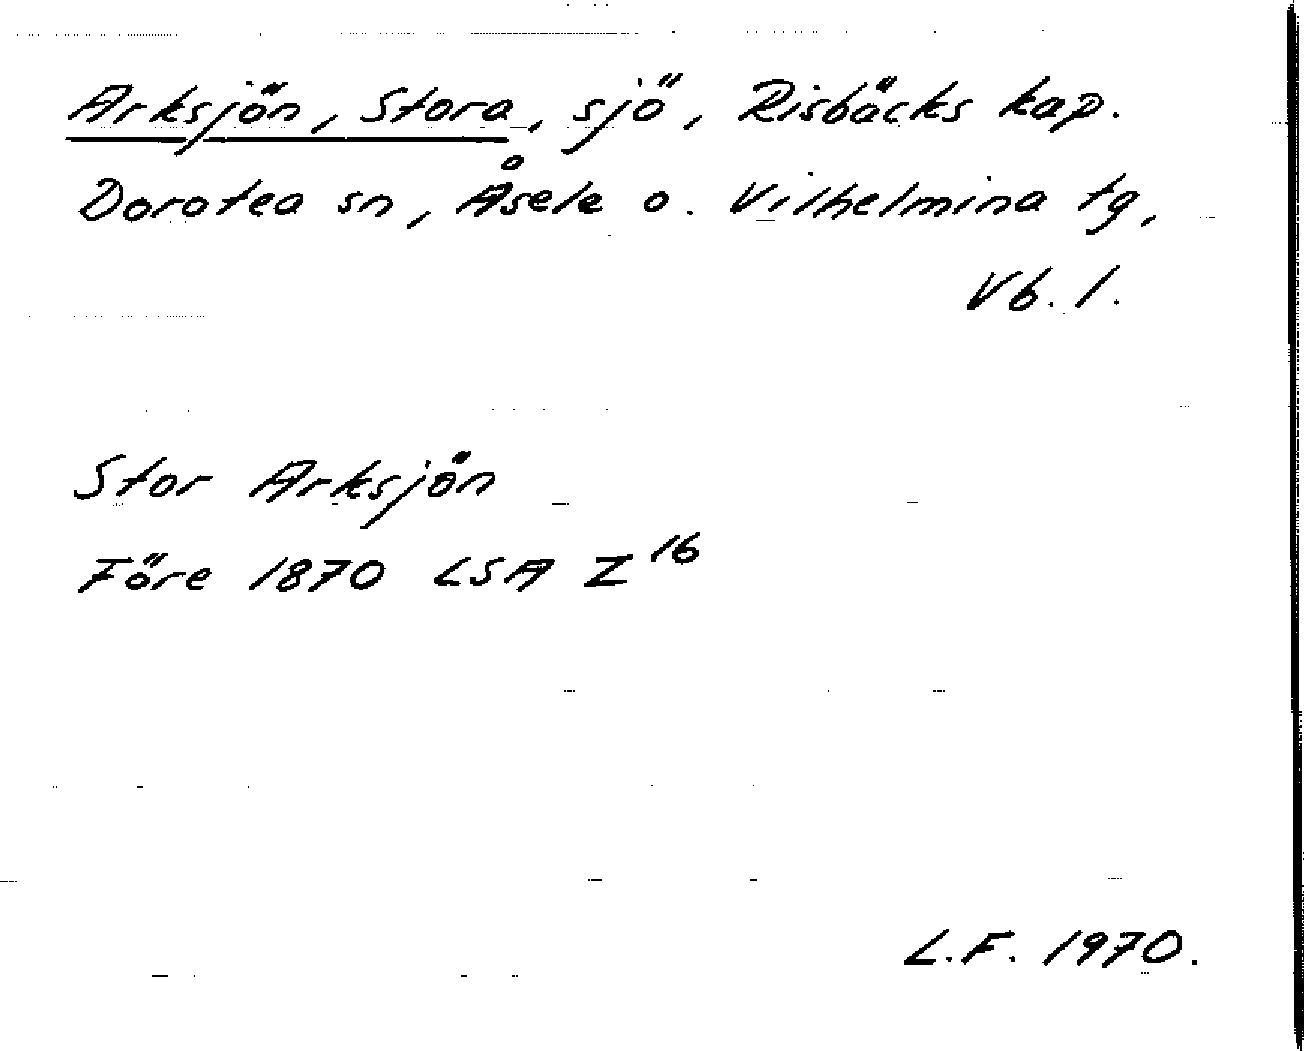 Arksjön, Stora, sjö, Risbäcks kap.
Dorotea sn, Åsele o. Vilhelmina tg,
Vb. l.
Stor Arksjön
Före 1870 LSA Z 16
L.F. 1970.